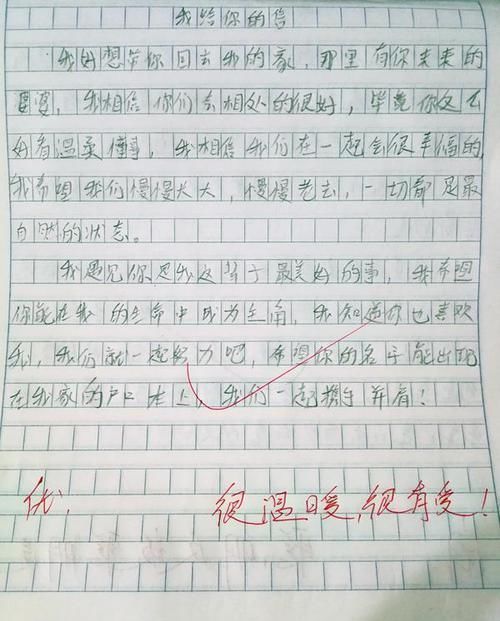 我给你的信
我好想带你回去我的家，那里有你未来的
婆婆，我相信你们会相处的很好，毕竟你这么
好看温柔懂事，我相信我们在一起会很幸福的，
我希望我们慢慢长大，慢慢老去，一切都是最
自然的状态。
我遇见你是我这辈子最美好的事，我希望
你能在我的生命中成为主角，我知道你也喜欢
我，我们就一起努力吧，希望你的名字能出现
在我家的户口本上，我们一起携手并肩！
优，
很温暖，很有爱！